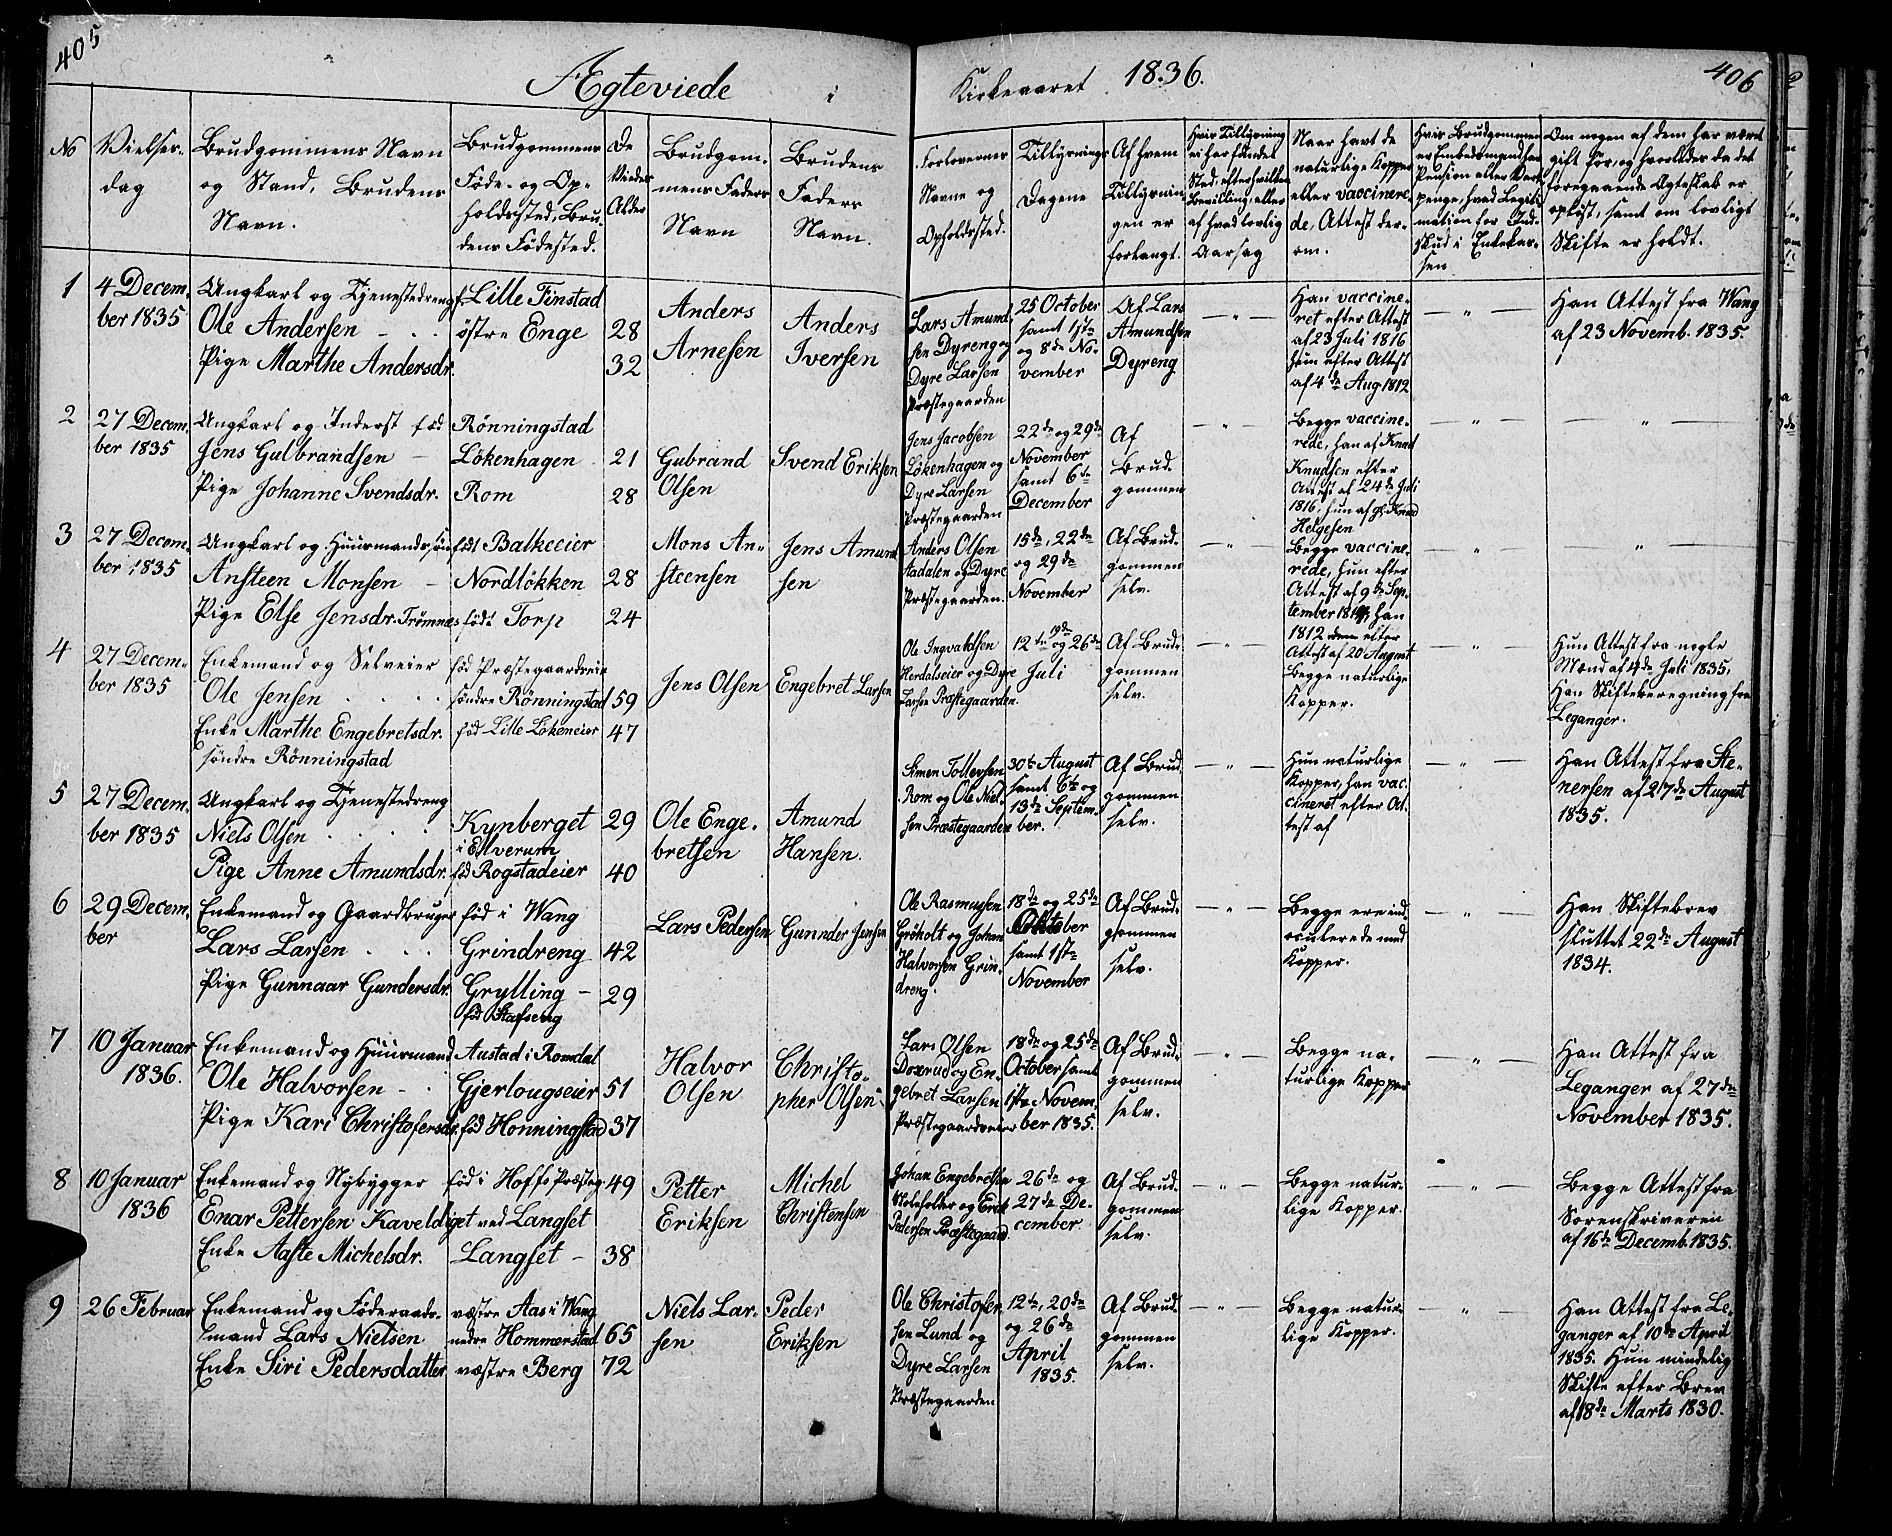 405
Ægteviede i
Kirkeaaret 1836.
406
No
Vielses-
dag
Brudgommens Navn
og Stand, Brudens
Navn.
Brudgommens
Føde- og Op-
holdssted, Bru-
dens Fødested.
De
Viedes
Alder
Brudgom-
mens Faders
Navn
Brudens
Faders
Navn.
Forloverner
Navne og
Opholdssted.
Tillysnings
Dagene
Af hvem
Tillysnin-
gen er
forlangt.
Hvis Tillysning
ei har fundet
Sted; efter hvilken
Bevilling, eller
af hvad lovlig
Aarsag
Naar havt de
naturlige Kopper
eller vaccinere-
de, Attest der-
om.
Hvis Brudgommen
er Embedsmand
Pension eller
penge, hvad Legiti-
mation for Ind-
skud i Enkekas-
sen
Om nogen af dem har været
gift før, og hvorledes da det
foregaaende Ægteskab er
opløst, samt om lovligt
Skifte er holdt.
1
4 Decem-
ber 1835
Ungkarl og Tjenestedreng
Ole Andersen
Pige Marthe Andersdr.
f. Lille Finstad
östre Enge
28
32
Anders
Arnesen
Anders
Iversen
Lars Amund-
sen Dyreng og
Dyre Larsen
Præstegaarden
25 October
samt 1ste
og 8de No-
vember
Af Lars
Amundsen
Dyreng
— " —
Han vaccine-
ret efter Attest
af 23 Juli 1816
hun efter Attest
af 4de Aug. 1812
— " —
Han Attest fra Wang
af 23 Novemb. 1835.
2
27 Decem-
ber 1835
Ungkarl og Inderst fød
Jens Gulbrandsen
Pige Johanne Svendsdr.
Rönningstad
Lökenhagen
Rom
21
28
Gubrand
Olsen
Svend Eriksen
Jens Jacobsen
Lökenhagen og
Dyre Larsen
Præstegaarden
22de og 29de
November
samt 6te
December
Af
Brud-
gommen
— " —
Begge vaccine-
rede, han af Knud
Knudsen efter
Attest af 24de Juli
1816, hun af gl. Knud
Helgesen
— " —
"
3
27 Decem-
ber 1835
Ungkarl og Huusmandssøn
Ansteen Monsen
Pige Else Jensdr. Trømnæs
født Balkeeier
Nordlökken
født Torp
28
24
Mons An-
steensen
Jens Amund-
sen
Anders Olsen
Aadalen og Dyre
Præstegaarden.
15de, 22de
og 29de
November
Af Brud-
gommen
selv.
— " —
Begge vaccine-
rede, hun efter
Attest af 9de Sep-
tember 181, han
1812 efter
Attest af 20 August
— " —
"
4
27 Decem-
ber 1835
Enkemand og Selveier
Ole Jensen
Enke Marthe Engebretsdr.
söndre Rönningstad
fød Præstegaardseie
söndre Rönningstad
fød Lille Lökeneier
59
47
Jens Olsen
Engebret Larsen
Ole Ingvaldsen
Herdalseier og Dyre
Larsen Præstegaarden.
12te 19de og 26de
Juli
Af Brud-
gommen
selv.
— " —
Begge naturlige
Kopper.
— " —
Hun Attest fra nogle
Mænd af 4de Juli 1835,
Han Skifteberegning fra
Leganger.
5
27 Decem-
ber 1835
Ungkarl og Tjenestedreng
Niels Olsen
Pige Anne Amundsdr.
Kynberget
i Elverum
fød Rogstadeier
29
40
Ole Enge-
bretsen
Amund
Hansen.
Simen Tollevsen
Rom og Ole Niel-
sen Præstegaarden
30te August
samt 6te og
13de Septem-
ber.
Af Brud-
gommen
selv.
— " —
Hun naturlige
Kopper, han vac-
cineret efter At-
test af
— " —
Han Attest fra Ste-
nersen af 27de August
1835.
6
29 Decem-
ber
Enkemand og Gaardbruger
Lars Larsen
Pige Gunnaar Gundersdr.
fød i Wang
Grindreng
Grylling
fød Stafseng
42
29
Lars Pedersen
Gunnder Jensen
Ole Rasmussen
Grøholt og Johan
Halvorsen Grin-
dreng.
18de og 25de
Oktober
samt 1ste
November
Af Brud-
gommen
selv.
— " —
Begge ere ind-
oculerede med
Kopper.
— " —
Han Skiftebrev
sluttet 22de August
1834.
7
10 Januar
1836.
Enkemand og Huusmand
Ole Halvorsen
Pige Kari Christofersdr.
Austad i Romdal
Gjerlougseier
fød Honningstad
51
37
Halvor
Olsen
Christo-
pher Olsen
Lars Olsen
Doxrud og En-
gebret Larsen
Præstegaardseier
18de og 25de
October samt
1ste Novem-
ber 1835.
Af Brud-
gommen
selv.
— " —
Begge na-
turlige Kopper
— " —
Han Attest fra
Leganger af 27de
November 1835.
8
10 Januar
1836
Enkemand og Nybygger
Enar Pettersen Kaveldiget
Enke Aaste Michelsdr.
fød i Hoffs Præsteg.
ved Langset
Langset
49
38
Petter
Eriksen
Michel
Christensen
Johan Engebretsen
og Erik
Pedersen Præstegaard
26de og
27de De-
cember.
Af Brud-
gommen
selv.
— " —
Begge natur-
lige Kopper.
— " —
Begge Attest fra
Sorenskriveren
af 16de Decemb. 1835.
9
26 Februar
Enkemand og Føderaads-
mand Lars Nielsen
Enke Siri Pedersdatter
væstre Aas i Wang
nedre Hommerstad
væstre Berg
65
72
Niels Lar-
sen
Peder
Eriksen
Ole Christofer-
sen Lund og
Dyre Larsen
Præstegaarden
12te, 20de
og 26de
April
1835.
Af Brud-
gommen
selv.
— " —
Begge natur-
lige Kopper.
"
Han Attest fra Le-
ganger af 10de April
1835. Hun mindelig
Skifte efter Brev
af 8de Marts 1830.